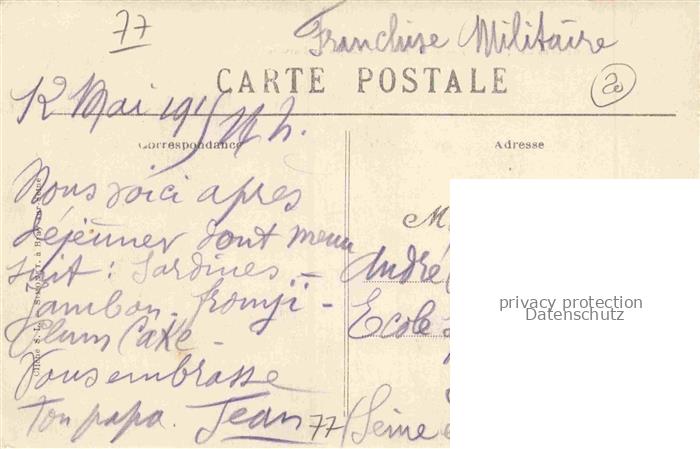 77
Franchise Militaire
CARTE POSTALE
20
12 Mai 1915 14 h.
Correspondance
Nous voici après
déjeuner dont menu
suit : Sardines -
Jambon - fromji -
Plum Cake -
Vous embrasse
Ton papa. Jean
77
Adresse
M
André
Ecole
(Seine
privacy protection
Datenschutz